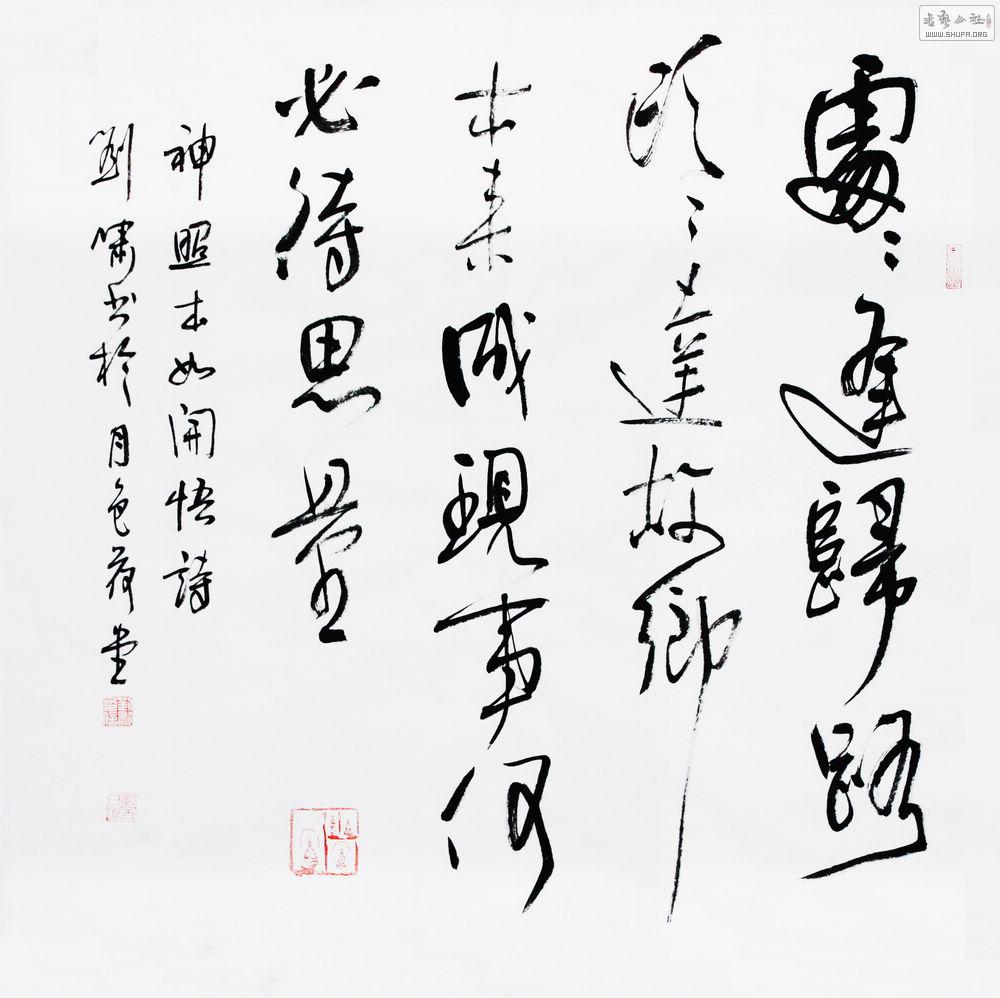 處〻逢歸路
頭〻達故鄉
本来成現事何
必待思量
神照本如開悟詩
劉嘯书於月色荷堂
書藝公社
WWW.SHUFA.ORG